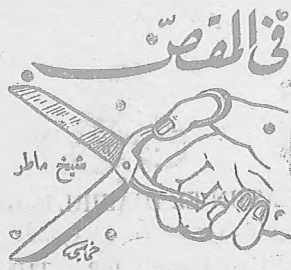 في المقصّ
شيخ ماطر